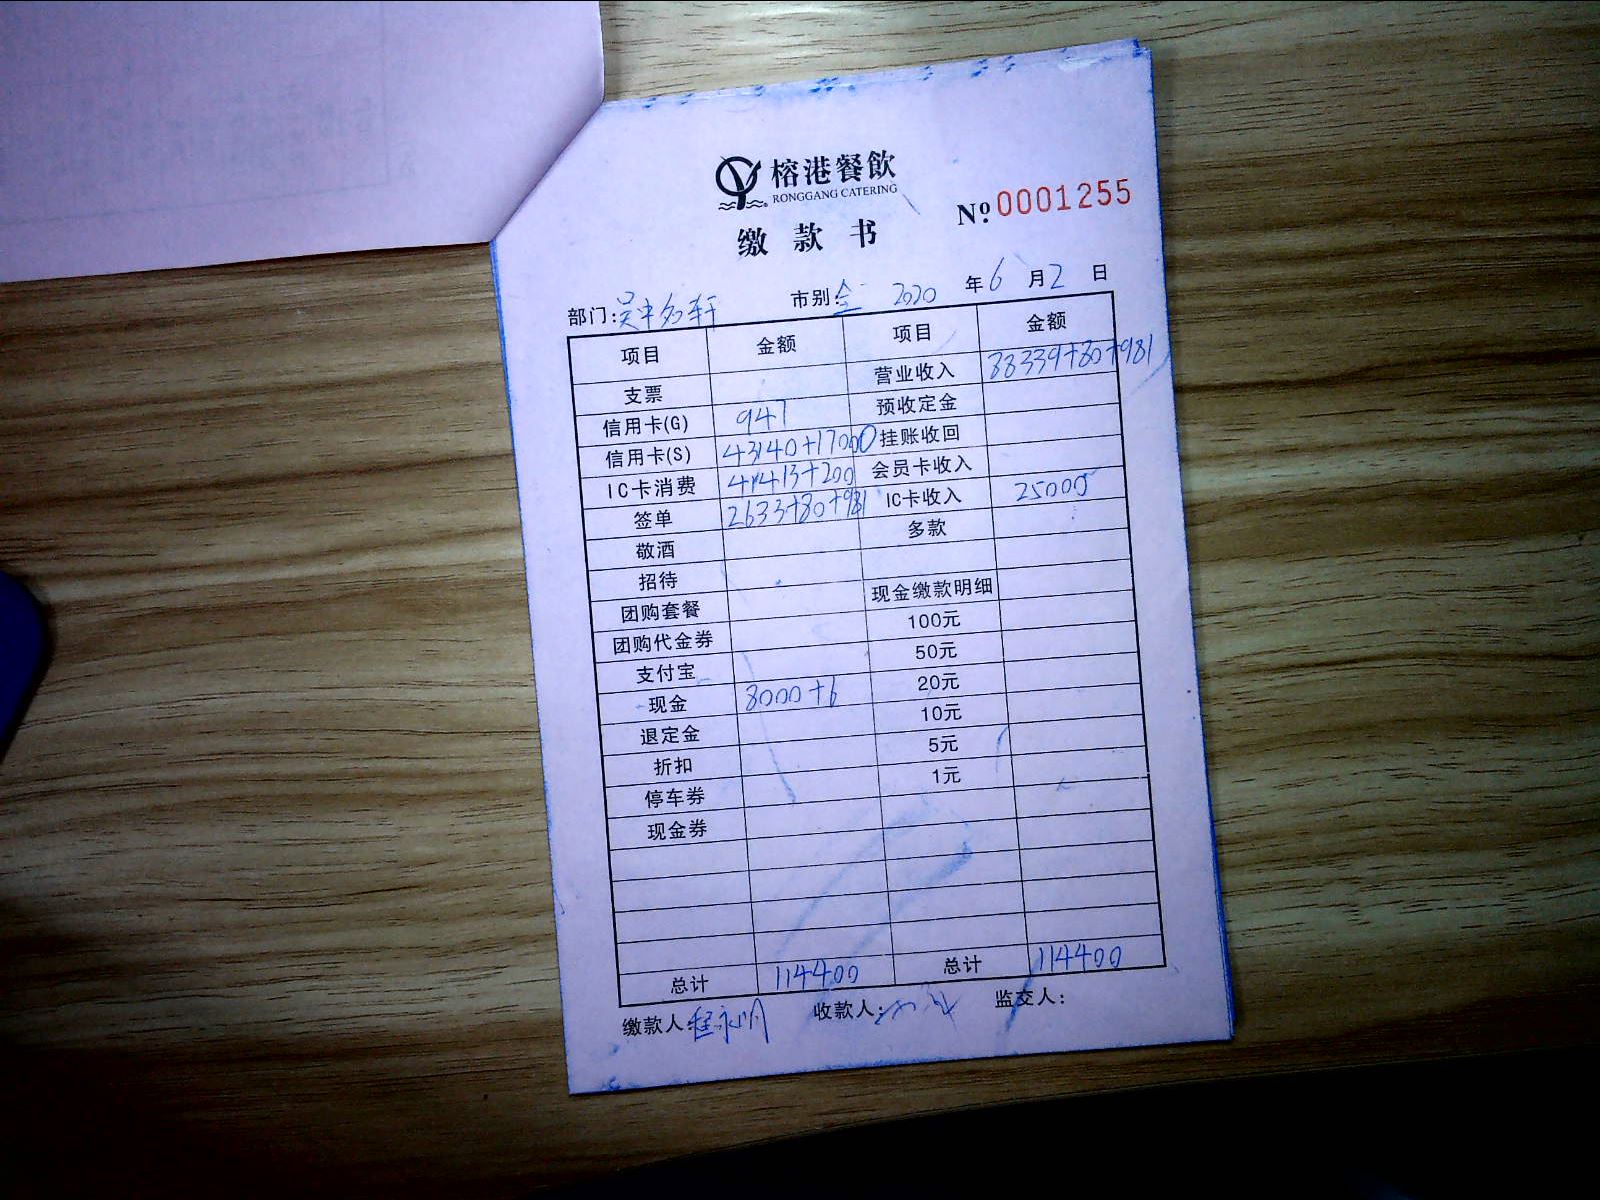 榕港餐飲
RONGGANG CATERING
№ 0001255
缴款书
部门: 吴中名轩 市别: 全 2020 年 6 月 2 日
项目 金额 项目 金额
支票 营业收入 88339+80+981
信用卡(G) 947 预收定金
信用卡(S) 43140+17000 挂账收回
IC卡消费 41413+200 会员卡收入
签单 2633+80+981 IC卡收入 25000
敬酒 多款
招待
团购套餐 现金缴款明细
团购代金券 100元
支付宝 50元
现金 8000+6 20元
退定金 10元
折扣 5元
停车券 1元
现金券
总计 114400 总计 114400
缴款人: 程永明 收款人: 监交人: